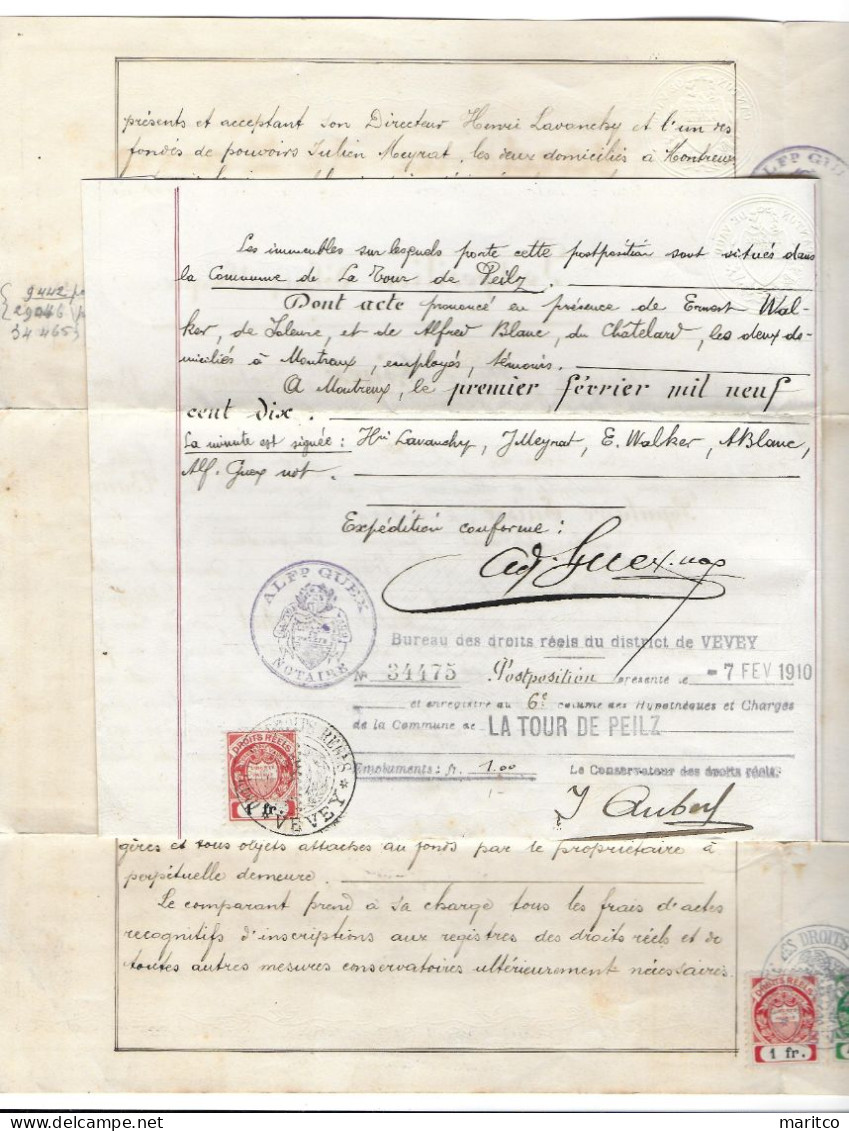 présents et acceptant son Directeur Henri Lavanchy et l'un des
fondés de pouvoirs Julien Meyrat, les deux domiciliés à Montreux
ALFD GUE
Les immeubles sur lesquels porte cette postposition sont situés dans
la Commune de La Tour de Peilz.
Dont acte prononcé en présence de Ernest Wal-
ker, de Soleure, et de Alfred Blanc, du Châtelard, les deux do-
miciliés à Montreux, employés, témoins.
A Montreux, le premier février mil neuf
cent dix.
La minute est signée: Hri Lavanchy, J Meyrat, E. Walker, ABlanc,
Alf. Guex not.
9442
29046
34465
Expédition conforme:
Guex. not
ALFD GUEX
NOTAIRE
Bureau des droits réels du district de VEVEY
No 34475 Postposition présenté le -7 FEV 1910
et enregistré au 6e volume des Hypothèques et Charges
de la Commune de LA TOUR DE PEILZ
Emoluments: fr. 1.00 Le Conservateur des droits réels.
J Aubert
DROITS RÉELS
1 fr.
DROITS RÉELS
VEVEY
gères et tous objets attachés au fonds par le propriétaire à
perpétuelle demeure.
Le comparant prend à sa charge tous les frais d'actes
recognitifs d'inscriptions aux registres des droits réels et de
toutes autres mesures conservatoires ultérieurement nécessaires.
DES DROITS
DROITS RÉELS
1 fr.
maritco